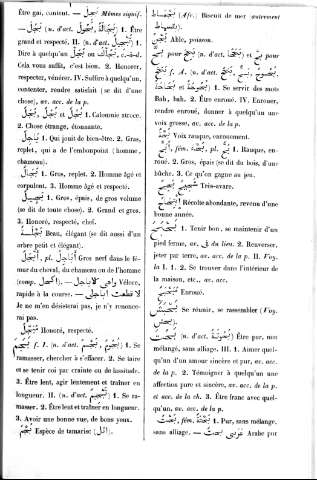 Être gai, content. — بَجِلَ Même signif.
— بَجُلَ (n. d'act. بَجَالَةٌ, بُجُولٌ) 1. Être
grand et respecté. II. (n. d'act. تَبْجِيلٌ) 1.
Dire à quelqu'un
Cela vous suffit, c'est bien. 2. Honorer,
respecter, vénérer. IV. Suffire à quelqu'un,
contenter, rendre satisfait (se dit d'une
chose), av. acc. de la p.
بَجَلٌ et بُجْلٌ 1. Calomnie atroce.
2. Chose étrange, étonnante.
1. Qui jouit de bien-être. 2. Gras,
replet, qui a de l'embonpoint (homme,
chameau).
بَجَالٌ 1. Gras, replet. 2. Homme âgé et
corpulent. 3. Homme âgé et respecté.
بَجِيلٌ 1. Gros, épais, de gros volume
(se dit de toute chose). 2. Grand et gros.
3. Honoré, respecté, chef.
Beau, élégant (se dit aussi d'un
arbre petit et élégant).
أَبْجَلُ, pl. أَبَاجِلُ Gros nerf dans le fé-
mur du cheval, du chameau ou de l'homme
(comp. أكحل). — Véloce,
rapide à la course. —
Je ne m'en désisterai pas, je n'y renonce-
rai pas.
مُبَجَّلٌ Honoré, respecté.
بَجَمَ f. I. (n. d'act. بَجْمٌ, بُجُومٌ) 1. Se
ramasser, chercher à s'effacer. 2. Se taire
et se tenir coi par crainte ou de lassitude.
3. Être lent, agir lentement et traîner en
longueur. II. (n. d'act. تَبْجِيمٌ) 1. Se ra-
masser. 2. Être lent et traîner en longueur.
3. Avoir une bonne vue, de bons yeux.
بُجْمٌ Espèce de tamarisc (اثل).
بُجْمَاطٌ (Afr.) Biscuit de mer autrement
Able, poisson.
بَحَّ pour بَحِحَ (n. d'act. بَحَحٌ), et بَحَّ pour
بَحَحَ f. A. (n. d'act. بَحٌّ,
بُحُوحٌ, بُحُوحَةٌ) 1. Se servir des mots
Bah, bah. 2. Être enroué. IV. Enrouer,
rendre enroué, donner à quelqu'un une
voix grosse, av. acc. de la p.
بُحَّةٌ Voix rauque, enrouement.
أَبَحُّ, fém. بَحَّاءُ, pl. بُحٌّ 1. Rauque, en-
roué. 2. Gros, épais (se dit du bois, d'une
bûche. 3. Ce qu'on gagne au jeu.
شحيح بحيح Très-avare.
Récolte abondante, revenu d'une
bonne année.
بَحْبَحَ 1. Tenir bon, se maintenir d'un
pied ferme, av. في du lieu. 2. Renverser,
jeter par terre, av. acc. de la p. II. Voy.
la I. 1. 2. Se trouver dans l'intérieur de
la maison, etc., av. acc.
Enroué.
Se réunir, se rassembler (Voy.
بَحُتَ (n. d'act. بُحُوتَةٌ) Être pur, non
mélangé, sans alliage. III. 1. Aimer quel-
qu'un d'un amour sincère et pur, av. acc.
de la p. 2. Témoigner à quelqu'un une
affection pure et sincère, av. acc. de la p.
et acc. de la ch. 3. Être franc avec quel-
qu'un, av. acc. de la p.
بَحْتٌ, fém. بَحْتَةٌ, 1. Pur, sans mélange,
sans alliage. — عربي بحت Arabe pur